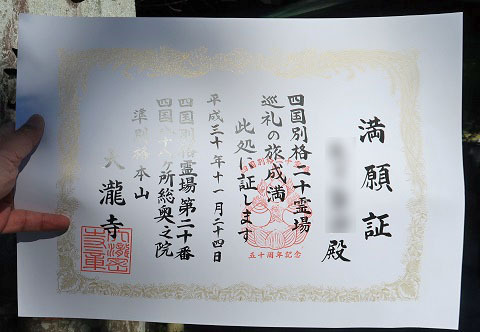 満願証
殿
四国別格二十霊場
巡礼の旅成満
此処に証します
平成三十年十一月二十四日
四国別格霊場第二十番
四国八十八ヶ所総奥之院
準別格本山
大瀧寺
五十周年記念